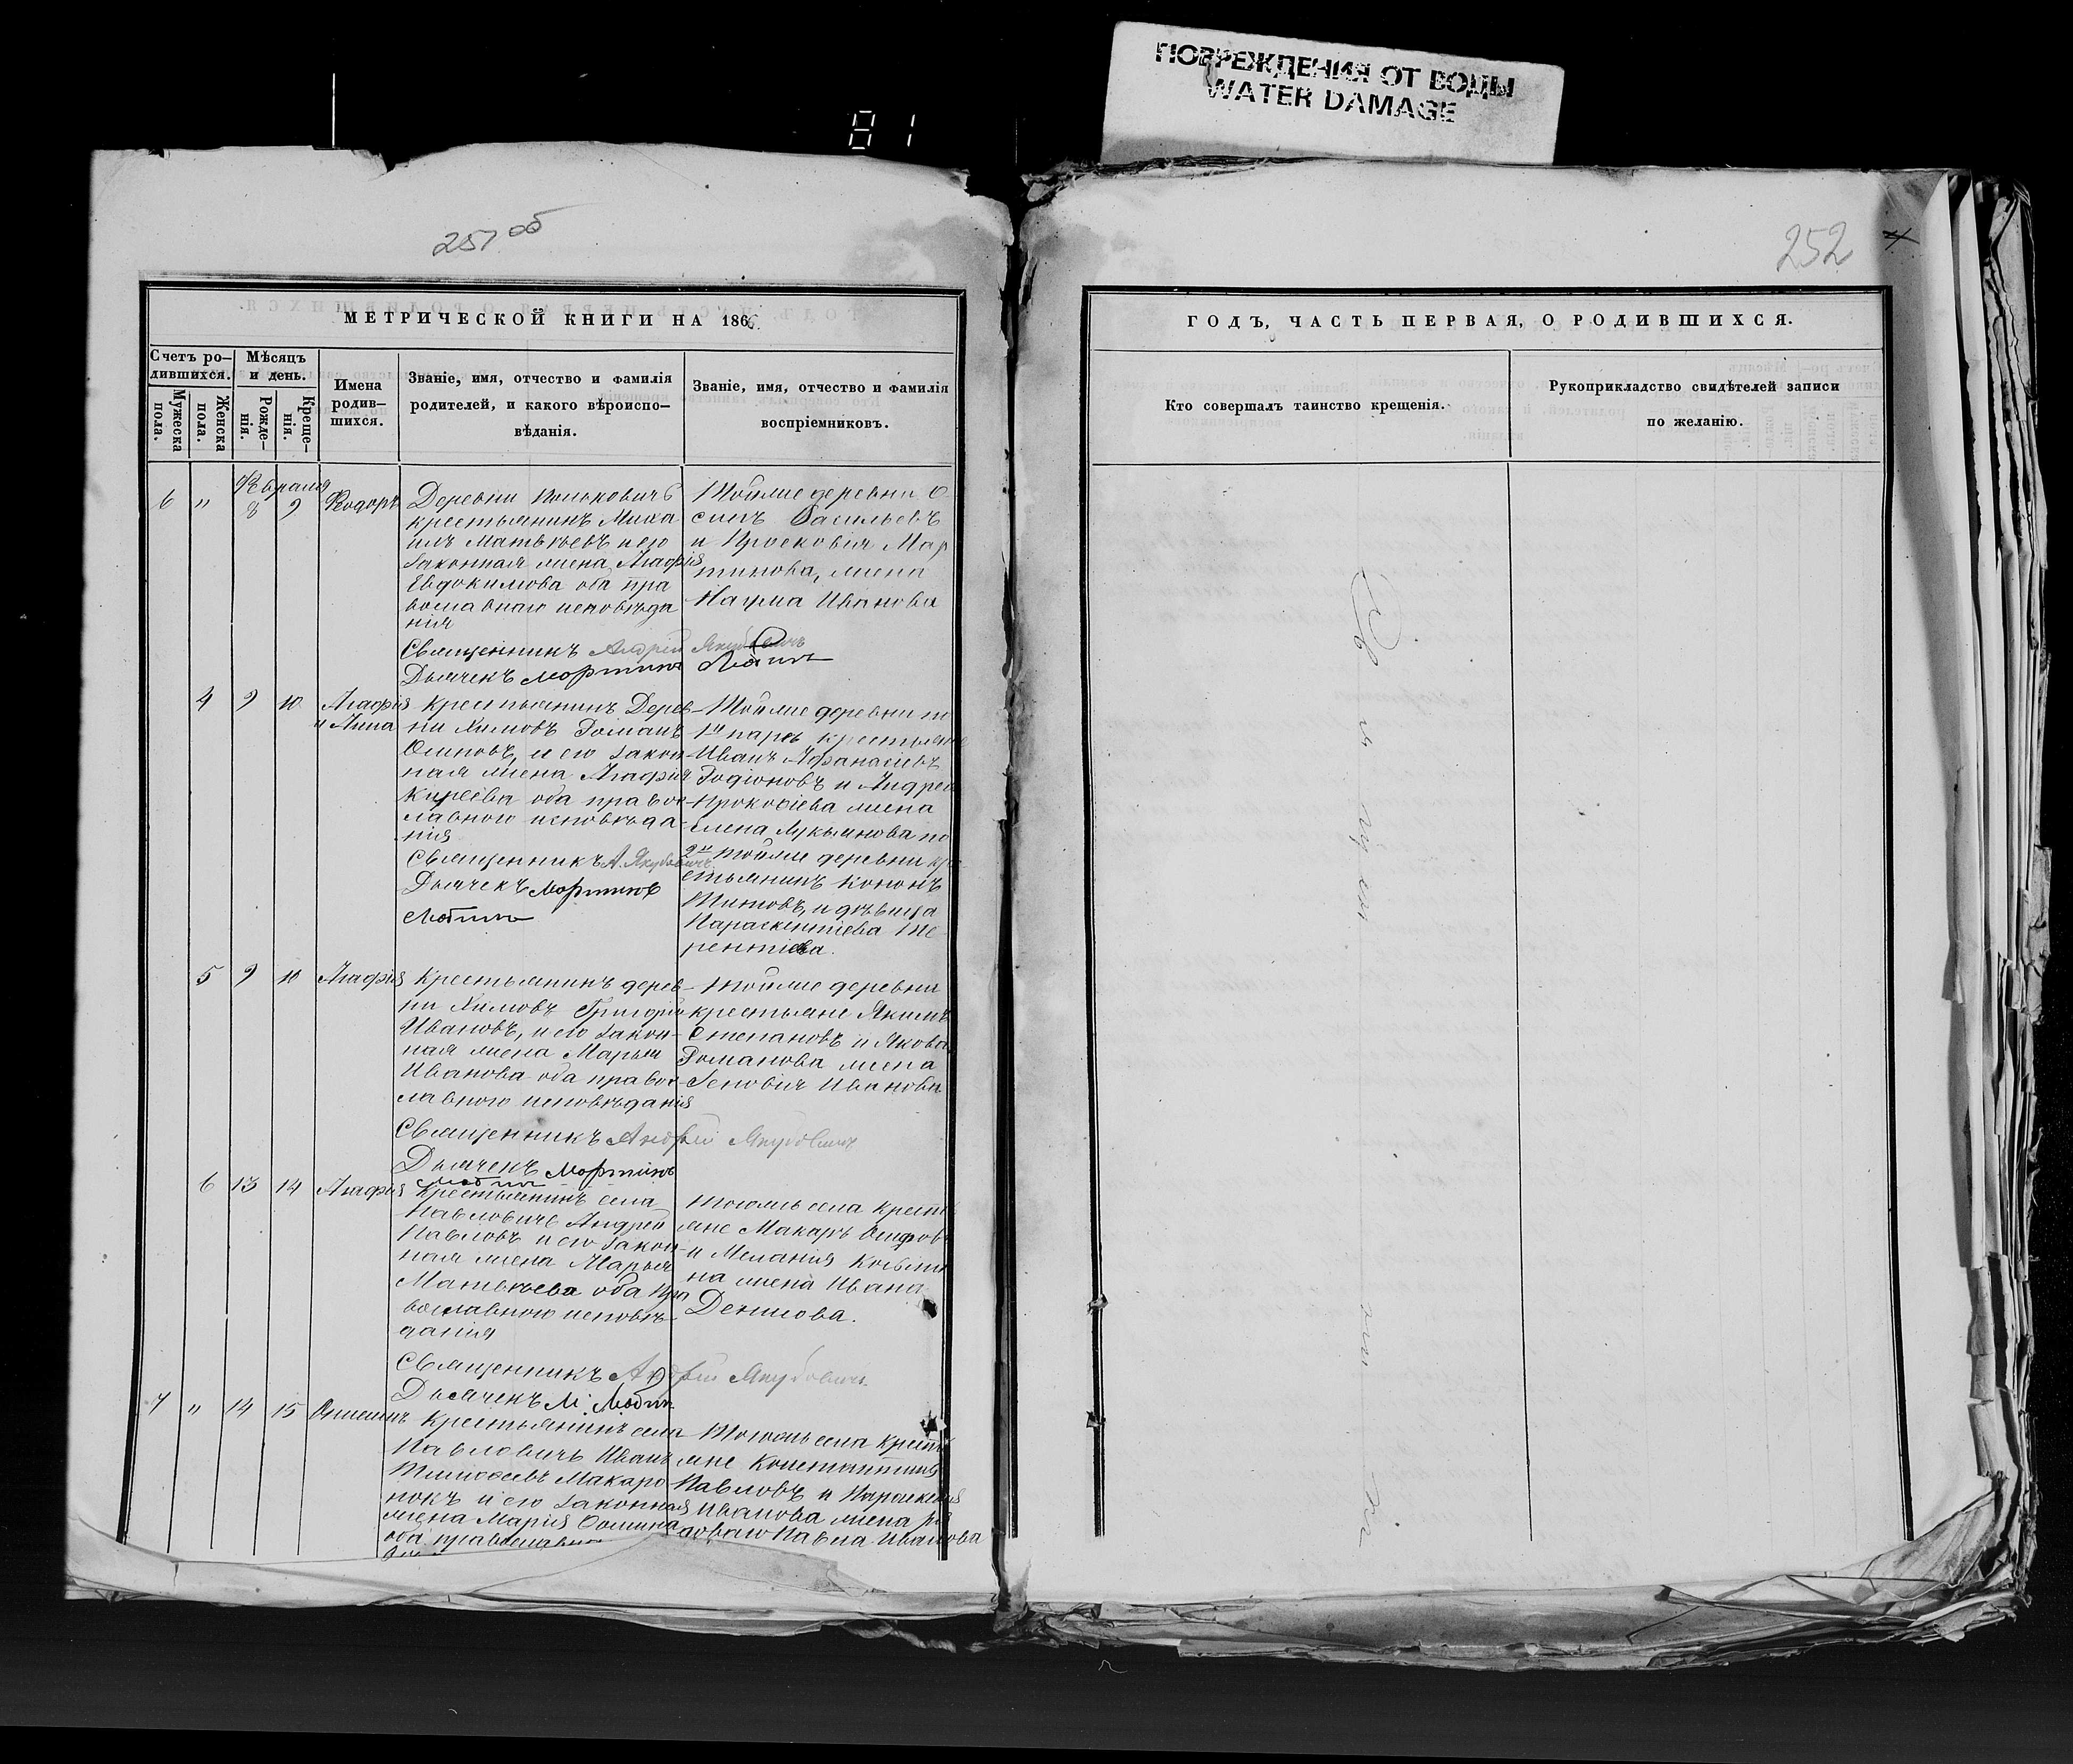 81
ПОВРЕЖДЕНИЯ ОТ ВОДЫ
WATER DAMAGE
251 об
252
МЕТРИЧЕСКОЙ КНИГИ НА 1866
Счетъ ро-
дившихся.
Мужеска
пола.
Женска
пола.
Мѣсяцъ
и день.
Рожде-
нія.
Креще-
нія.
Имена
родив-
шихся.
Званіе, имя, отчество и фамилія
родителей, и какого вѣроиспо-
вѣданія.
Званіе, имя, отчество и фамилія
воспріемниковъ.
Февраля
6 " 8 9 Феодоръ
Деревни
крестьянинъ Миха
илъ Матвѣевъ и его
законная жена Агафія
Евдокимова оба пра
вославнаго исповѣда
нія
Священникъ Андрей Якубовичъ
Дьячекъ Мартинъ
Тойже деревни О
сипъ Васильевъ
и Мар
тинова, жена
Наума Иванова
4 9 10 Агафія
и Анна
Крестьянинъ Дерев-
ни Химовъ Романъ
Осиповъ, и его закон
ная жена Агафія
Киреева оба правос-
лавного исповѣда-
нія
Священникъ А. Якубовичъ
Дьячекъ Мартинъ
Тойже деревни по
1й парѣ крестьяне
Иванъ Афанасіевъ
Родіоновъ и Андрея
Прокофіева жена
Елена Лукьянова по
2й тойже деревни кре
стьянинъ Кононъ
Титовъ, и дѣвица
Те
рентіева.
5 9 10 Агафія
Крестьянинъ дерев-
ни Химовъ Григорій
Ивановъ, и его закон-
ная жена Марья
Иванова оба правос-
лавного исповѣданія
Священникъ Андрей Якубовичъ
Дьячекъ Мартинъ
тойже деревни
крестьяне Якимъ
Степановъ и Якова
Романова жена
Иванова
6 13 14 Агафія
Крестьянинъ села
Павловичь Андрей
Павловъ и его закон-
ная жена Марья
Матвѣева оба пра
вославного исповѣ-
данія
Священникъ Андрей Якубовичъ
Дьячекъ М.
Тогожъ села крестъ
яне Макаръ Осифовъ
и Меланія Козьми
на жена Ивана
Денисова.
7 " 14 15 Онисимъ
Крестьянинъ села
Павловичь Иванъ
Тимофеевъ Макаро
нокъ и его законная
жена Марія Фомина
оба православного
Тогожъ села крестъ
яне Константинъ
Павловъ и Параскевія
Иванова жена ря
доваго Павла Иванова
ГОДЪ, ЧАСТЬ ПЕРВАЯ, О РОДИВШИХСЯ.
Кто совершалъ таинство крещенія.
Рукоприкладство свидѣтелей записи
по желанію.